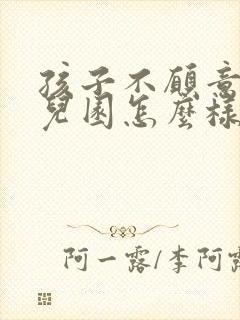 孩子不願意
兒園怎麼樣
阿一露/李阿露